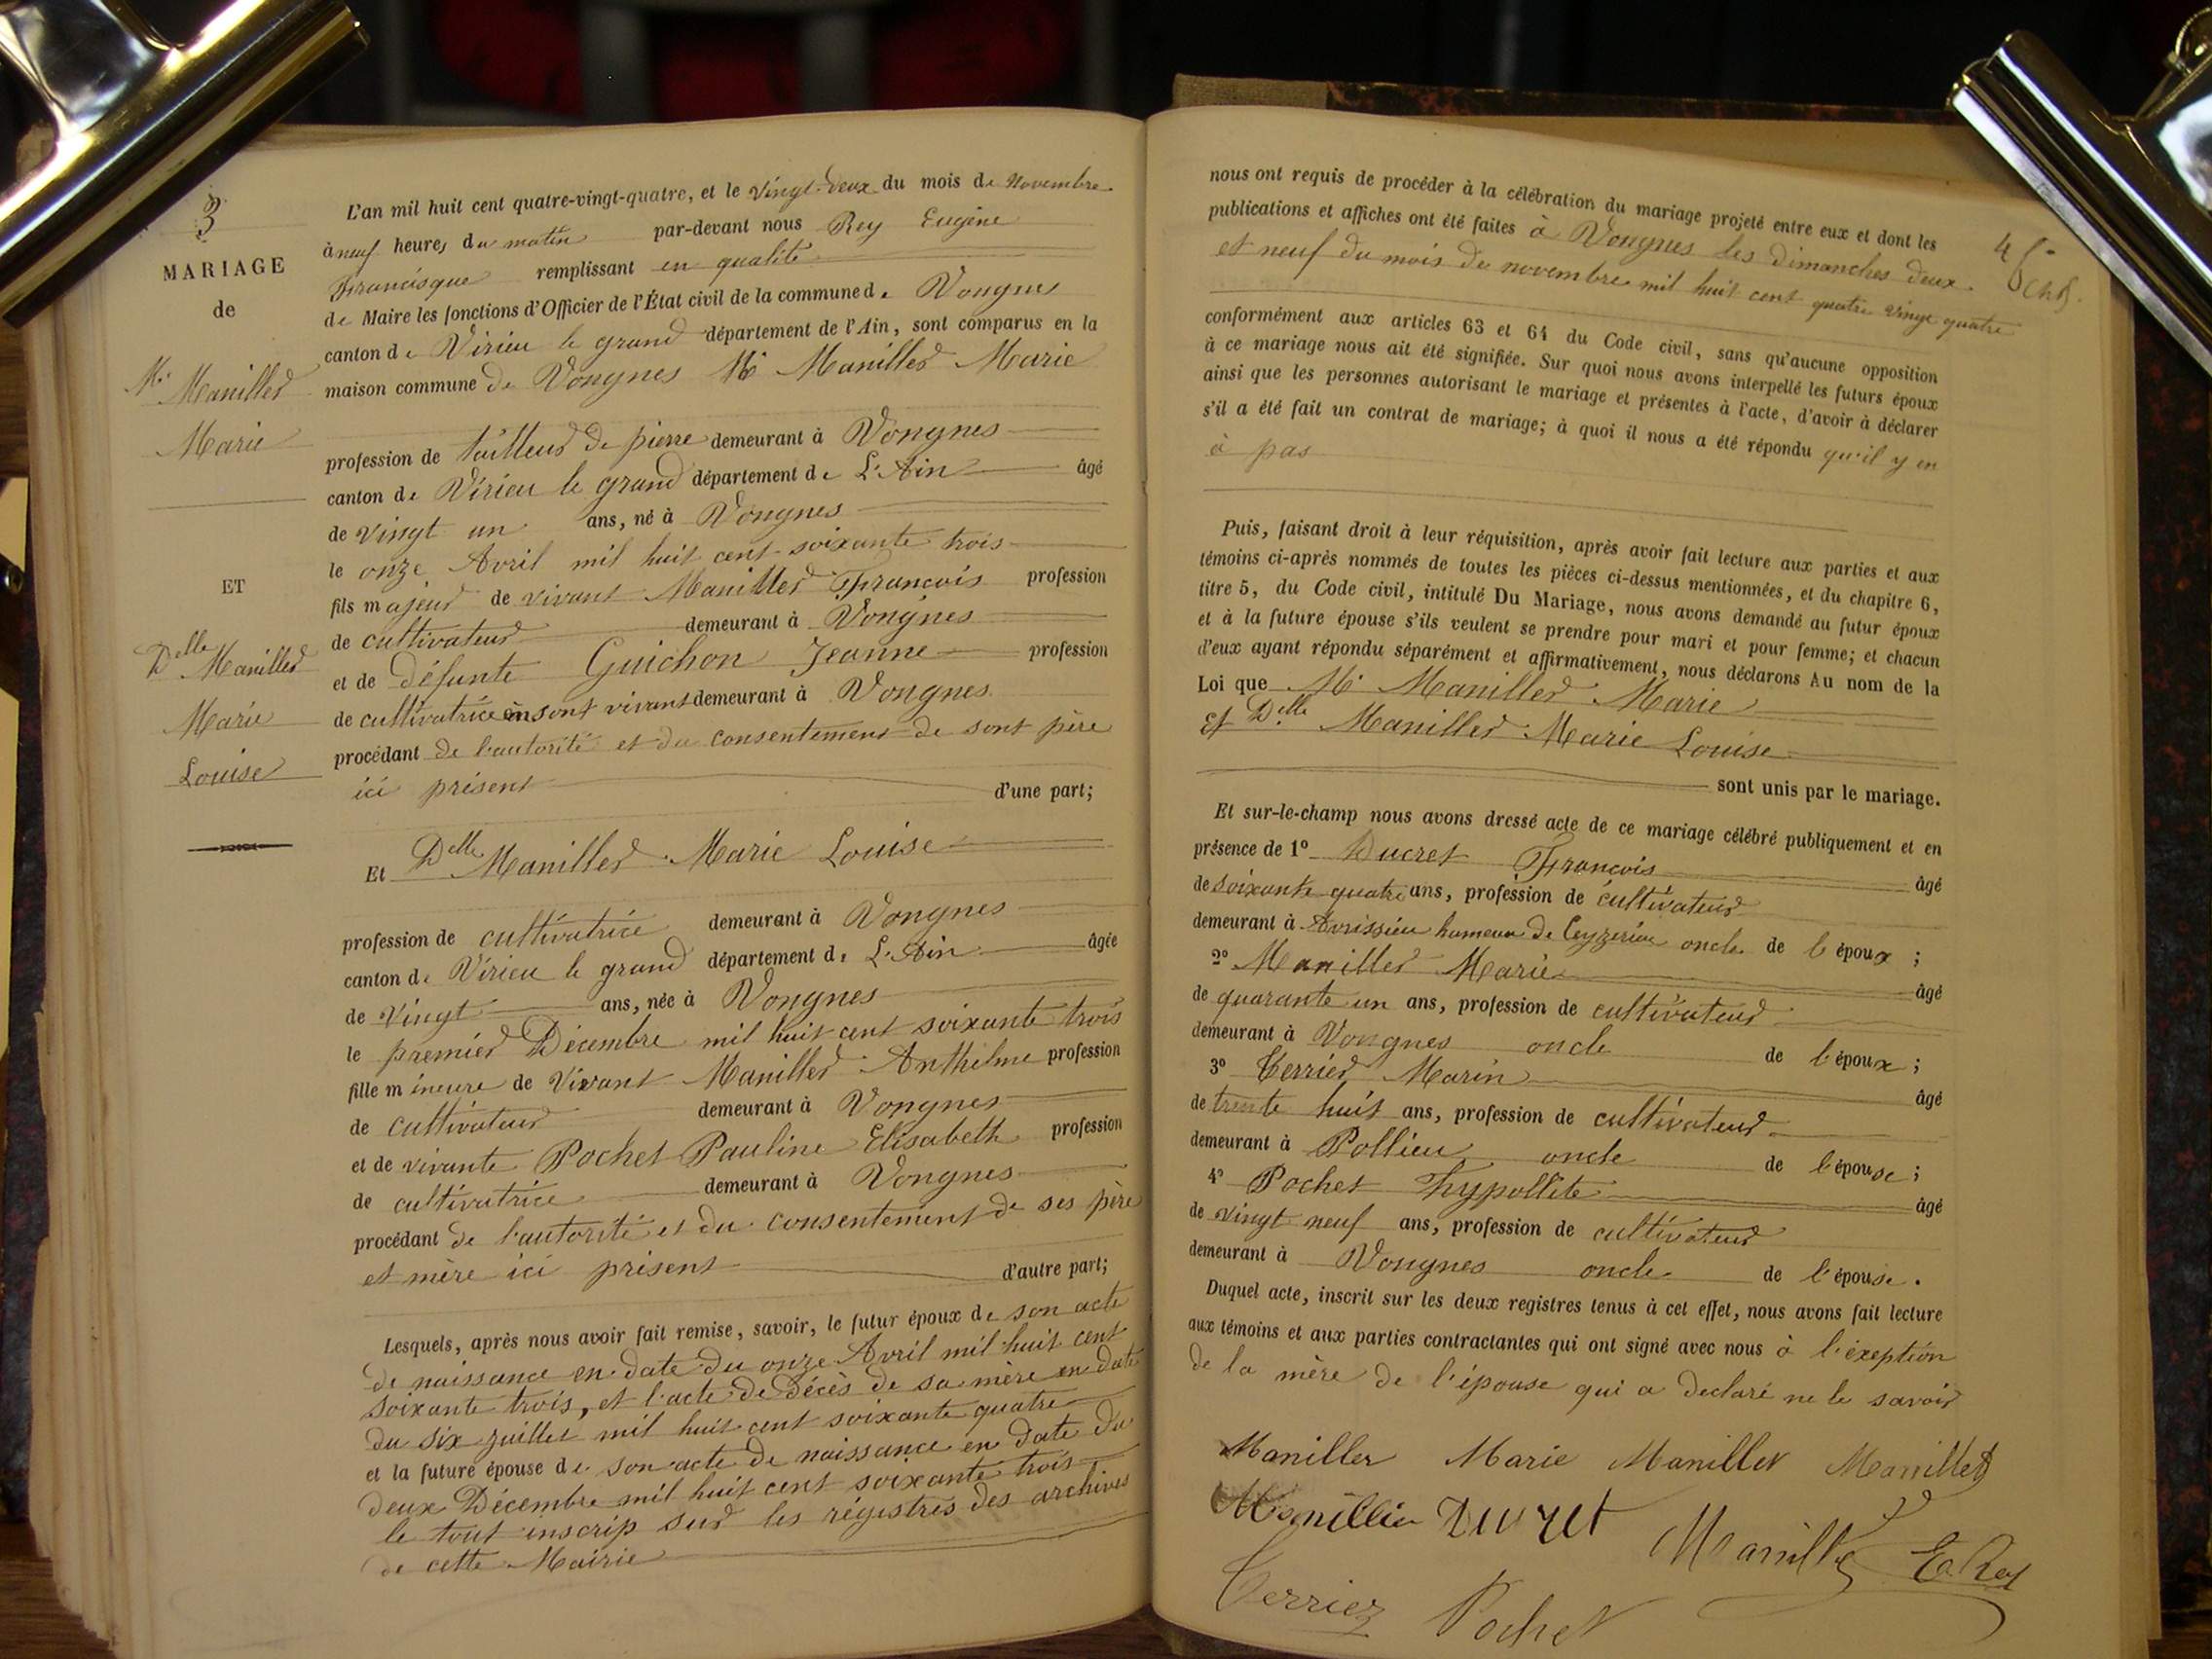 3
MARIAGE
de
Mr Maniller
Marie
ET
Delle Maniller
Marie
Louise
L'an mil huit cent quatre-vingt-quatre, et le vingt-deux du mois de Novembre
à neuf heures du matin par-devant nous Rey Eugène
Francisque remplissant en qualité
de Maire les fonctions d'Officier de l'État civil de la commune de Vongnes
canton de Virieu le grand département de l'Ain, sont comparus en la
maison commune de Vongnes Mr Maniller Marie
profession de tailleur de pierre demeurant à Vongnes
canton de Virieu le grand département de L'Ain âgé
de vingt un ans, né à Vongnes
le onze Avril mil huit cent soixante trois
fils majeur de vivant Maniller Francois profession
de cultivateur demeurant à Vongnes
et de défunte Guichon Jeanne profession
de cultivatrice en sont vivant demeurant à Vongnes
procédant de l'autorité et du consentement de sont père
ici présent d'une part;
Et Delle Maniller Marie Louise
profession de cultivatrice demeurant à Vongnes
canton de Virieu le grand département de L'Ain âgée
de vingt ans, née à Vongnes
le premier Décembre mil huit cent soixante trois
fille mineure de Vivant Maniller Anthelme profession
de cultivateur demeurant à Vongnes
et de vivante Pochet Pauline Elisabeth profession
de cultivatrice demeurant à Vongnes
procédant de l'autorité et du consentement de ses père
et mère ici présent d'autre part;
Lesquels, après nous avoir fait remise, savoir, le futur époux de son acte
de naissance en date du onze Avril mil huit cent
soixante trois, et l'acte de décès de sa mère en date
du six juillet mil huit cent soixante quatre
et la future épouse de son acte de naissance en date du
deux Décembre mil huit cent soixante trois
le tout inscrip sur les régistres des archives
de cette Mairie
nous ont requis de procéder à la célébration du mariage projeté entre eux et dont les
publications et affiches ont été faites à Vongnes les dimanches deux
et neuf du mois de novembre mil huit cent quatre vingt quatre
conformément aux articles 63 et 64 du Code civil, sans qu'aucune opposition
à ce mariage nous ait été signifiée. Sur quoi nous avons interpellé les futurs époux
ainsi que les personnes autorisant le mariage et présentes à l'acte, d'avoir à déclarer
s'il a été fait un contrat de mariage; à quoi il nous a été répondu qu'il y en
à pas
Puis, faisant droit à leur réquisition, après avoir fait lecture aux parties et aux
témoins ci-après nommés de toutes les pièces ci-dessus mentionnées, et du chapitre 6,
titre 5, du Code civil, intitulé Du Mariage, nous avons demandé au futur époux
et à la future épouse s'ils veulent se prendre pour mari et pour femme; et chacun
d'eux ayant répondu séparément et affirmativement, nous déclarons Au nom de la
Loi que Mr Maniller Marie
et Delle Maniller Marie Louise
sont unis par le mariage.
Et sur-le-champ nous avons dressé acte de ce mariage célébré publiquement et en
présence de 1º Ducret Francois âgé
de soixante quatre ans, profession de cultivateur
demeurant à Avrissieu hameau de Ceyzerieu oncle de l'époux ;
2º Maniller Marie âgé
de quarante un ans, profession de cultivateur
demeurant à Vongnes oncle de l'époux ;
3º Terrier Marin âgé
de trente huit ans, profession de cultivateur
demeurant à Pollieu oncle de l'épouse ;
4º Pochet hypollite âgé
de vingt neuf ans, profession de cultivateur
demeurant à Vongnes oncle de l'épouse.
Duquel acte, inscrit sur les deux registres tenus à cet effet, nous avons fait lecture
aux témoins et aux parties contractantes qui ont signé avec nous à l'éxeption
de la mère de l'épouse qui a declaré ne le savoir
Maniller Marie Maniller Maniller
Manillier Ducret Maniller E. Rey
Terrier Pochet